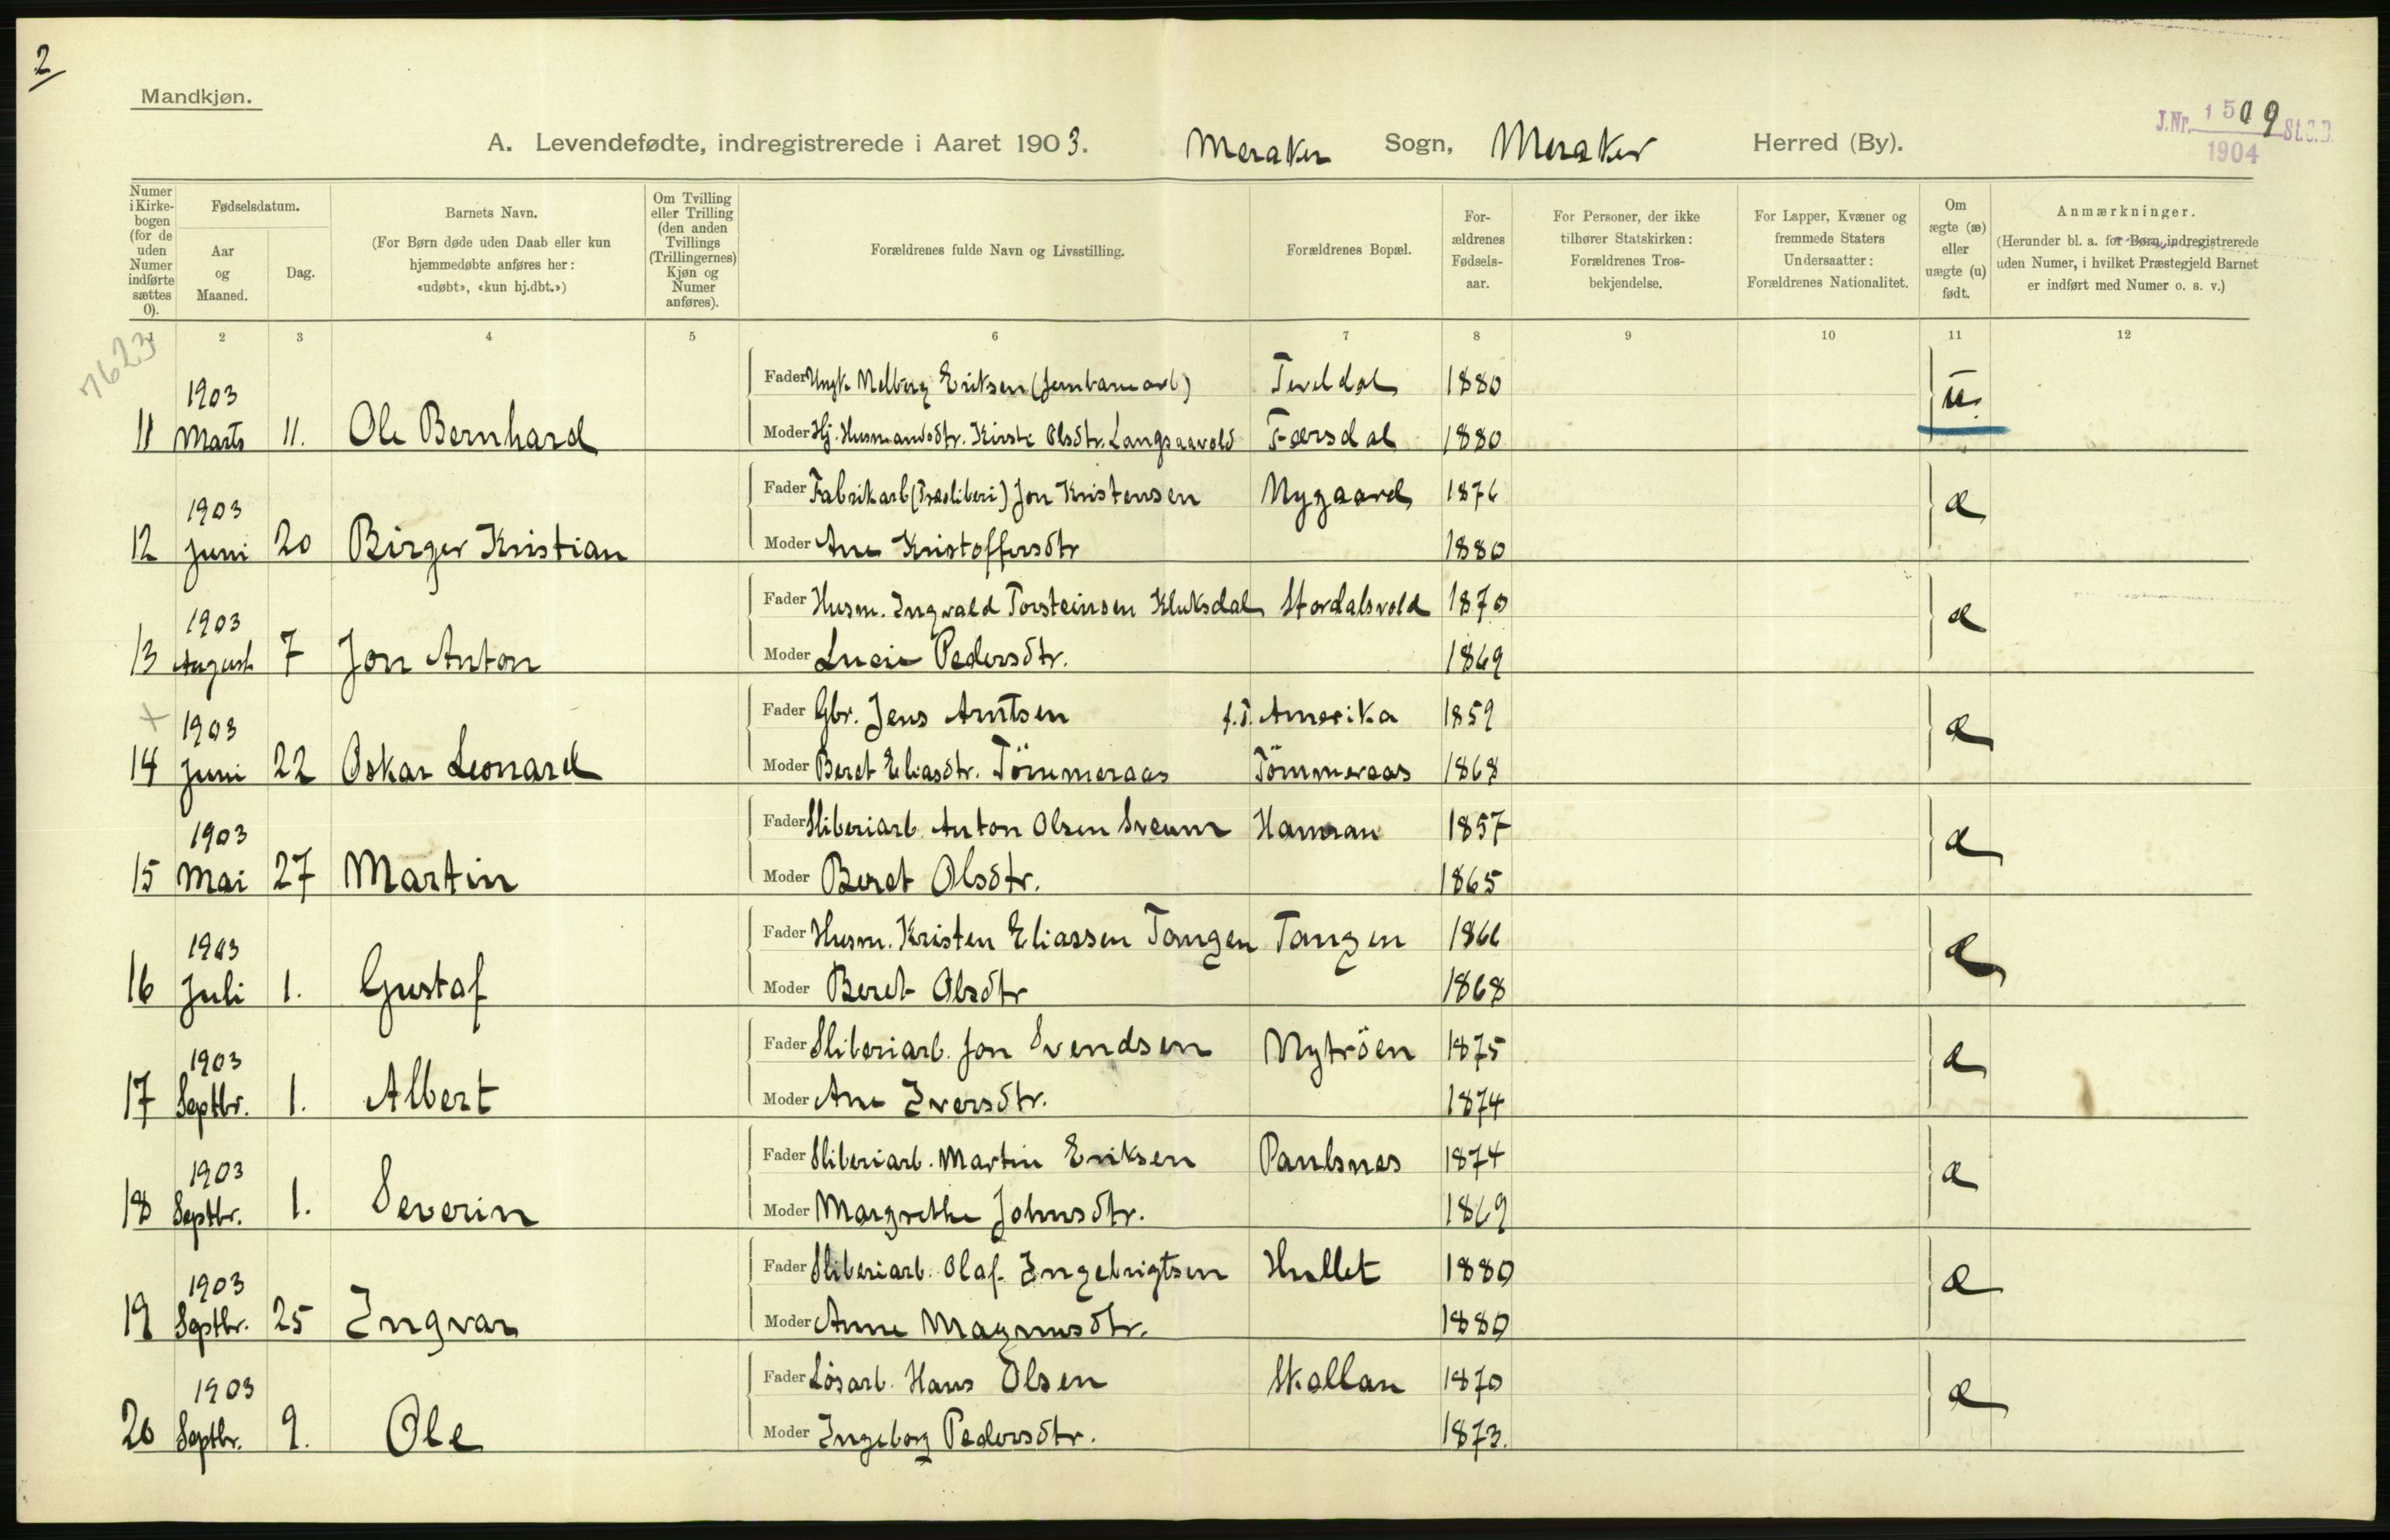 2
Mandkjøn.
J.Nr. 1509 St.C.B.
1904
A. Levendefødte, indregistrerede i Aaret 1903. Meraker Sogn, Meraker Herred (By).
Numer i Kirkebogen (for de uden Numer indførte sættes 0).
Fødselsdatum.
Aar og Maaned.
Dag.
Barnets Navn.
(For Børn døde uden Daab eller kun hjemmedøbte anføres her: «udøbt», «kun hj.dbt.»)
Om Tvilling eller Trilling (den anden Tvillings (Trillingernes) Kjøn og Numer anføres).
Forældrenes fulde Navn og Livsstilling.
Forældrenes Bopæl.
Forældrenes Fødselsaar.
For Personer, der ikke tilhører Statskirken: Forældrenes Trosbekjendelse.
For Lapper, Kvæner og fremmede Staters Undersaatter: Forældrenes Nationalitet.
Om ægte (æ) eller uægte (u) født.
Anmærkninger.
(Herunder bl. a. for Børn, indregistrerede uden Numer, i hvilket Præstegjeld Barnet er indført med Numer o. s. v.)
1 2 3 4 5 6 7 8 9 10 11 12
7623
Fader Ungk. Melberg Eriksen (Jernbanearb) Teveldal 1880
11 1903 Marts 11. Ole Bernhard u.
Moder Hj. Husmandsdtr. Kirste Olsdtr. Langsaavold Færsdal 1880
Fader Fabrikarb (Træsliberi) Jon Kristensen Nygaard 1876
12 1903 Juni 20 Birger Kristian æ
Moder Ane Kristoffersdtr 1880
Fader Husm. Ingvald Torsteinsen Kluksdal Stordalsvold 1870
13 1903 August 7 Jon Anton æ
Moder Lucie Pedersdtr. 1869
Fader Gbr. Jens Arntsen f.T. Amerika 1859
14 1903 Juni 22 Oskar Leonard æ
Moder Beret Eliasdtr. Tömmeraas Tömmeraas 1868
Fader Sliberiarb. Anton Olsen Sveum Hamran 1857
15 1903 Mai 27 Martin æ
Moder Beret Olsdtr. 1865
Fader Husm. Kristen Eliassen Tangen Tangen 1866
16 1903 Juli 1. Gustaf æ
Moder Beret Olsdtr 1868
Fader Sliberiarb. Jon Svendsen Nytröen 1875
17 1903 Septbr. 1. Albert æ
Moder Ane Iversdtr. 1874
Fader Sliberiarb. Martin Eriksen Paulsnes 1874
18 1903 Septbr. 1. Severin æ
Moder Margrethe Johnsdtr. 1869
Fader Sliberiarb. Olaf Ingebrigtsen Hullet 1880
19 1903 Septbr. 25 Ingvar æ
Moder Anne Magnusdtr. 1880
Fader Løsarb. Hans Olsen Skallan 1870
20 1903 Septbr. 9. Ole æ
Moder Ingeborg Pedersdtr. 1873.